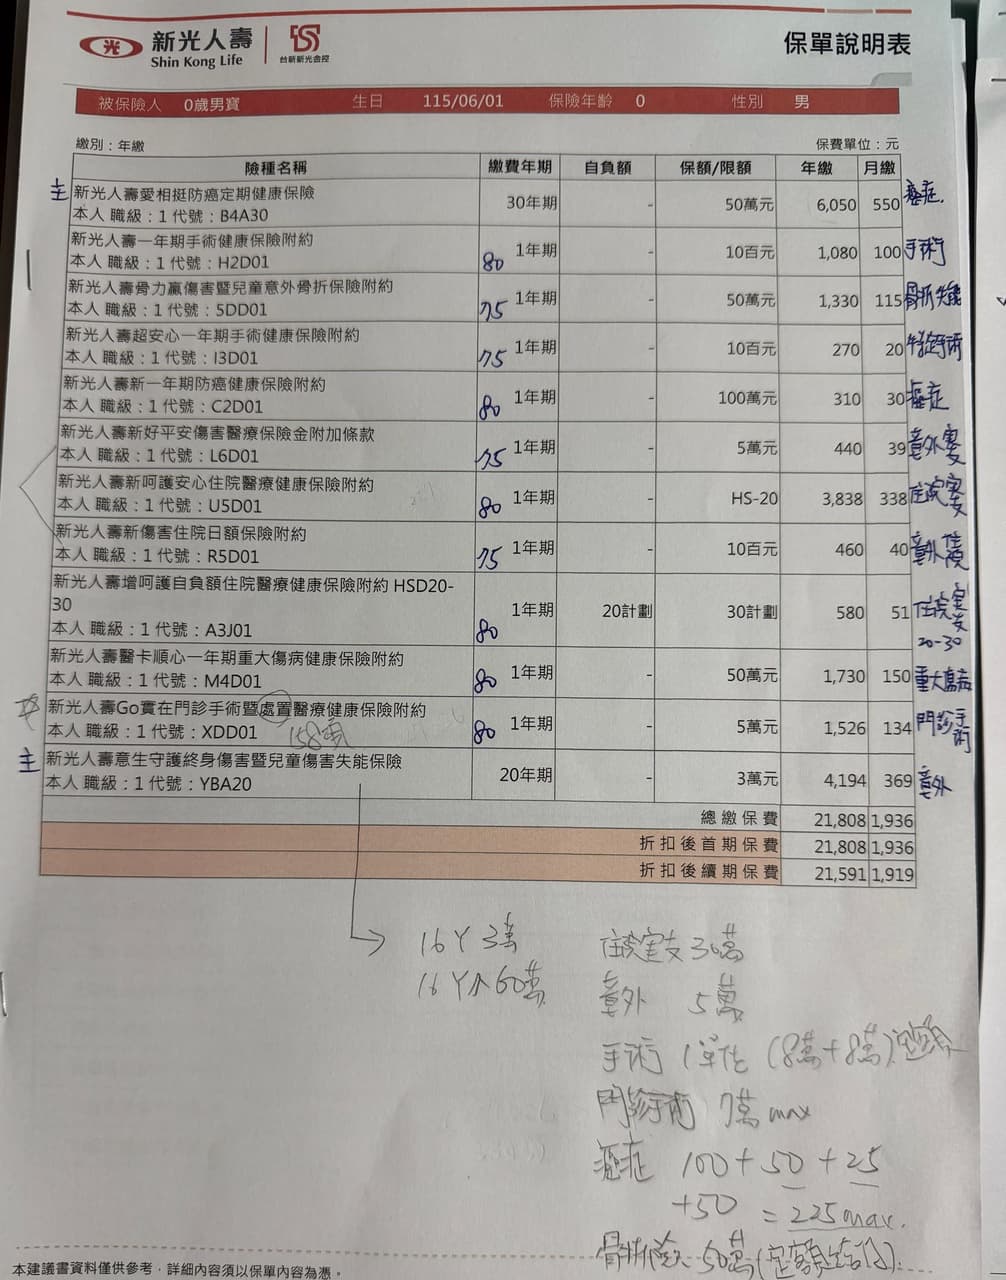 新光人壽
Shin Kong Life
台新新光金控
保單說明表
被保險人 0歲男寶 生日 115/06/01 保險年齡 0 性別 男
繳別：年繳 保費單位：元
險種名稱 繳費年期 自負額 保額/限額 年繳 月繳
主 新光人壽愛相挺防癌定期健康保險
本人 職級：1 代號：B4A30 30年期 - 50萬元 6,050 550 癌症
新光人壽一年期手術健康保險附約
本人 職級：1 代號：H2D01 80 1年期 - 10百元 1,080 100 手術
新光人壽骨力贏傷害暨兒童意外骨折保險附約
本人 職級：1 代號：5DD01 75 1年期 - 50萬元 1,330 115 骨折失能
新光人壽超安心一年期手術健康保險附約
本人 職級：1 代號：I3D01 75 1年期 - 10百元 270 20 手術
新光人壽新一年期防癌健康保險附約
本人 職級：1 代號：C2D01 80 1年期 - 100萬元 310 30 癌症
新光人壽新好平安傷害醫療保險金附加條款
本人 職級：1 代號：L6D01 75 1年期 - 5萬元 440 39 意外實支
新光人壽新呵護安心住院醫療健康保險附約
本人 職級：1 代號：U5D01 80 1年期 - HS-20 3,838 338 住院實支
新光人壽新傷害住院日額保險附約
本人 職級：1 代號：R5D01 75 1年期 - 10百元 460 40 意外住院
新光人壽增呵護自負額住院醫療健康保險附約 HSD20-
30
本人 職級：1 代號：A3J01 80 1年期 20計劃 30計劃 580 51 住院實支
20-30
新光人壽醫卡順心一年期重大傷病健康保險附約
本人 職級：1 代號：M4D01 80 1年期 - 50萬元 1,730 150 重大傷病
新光人壽Go實在門診手術暨處置醫療健康保險附約
本人 職級：1 代號：XDD01 158萬 80 1年期 - 5萬元 1,526 134 門診手術
主 新光人壽意生守護終身傷害暨兒童傷害失能保險
本人 職級：1 代號：YBA20 20年期 - 3萬元 4,194 369 意外
總繳保費 21,808 1,936
折扣後首期保費 21,808 1,936
折扣後續期保費 21,591 1,919
16Y 3萬
16Y 60萬
住院實支 30萬
意外 5萬
手術 1單位 (8萬+8萬)
門診手術 7萬 max
癌症 100+50+25
+50 = 225 max.
骨折險 50萬 (定額給付)
本建議書資料僅供參考，詳細內容須以保單內容為憑。